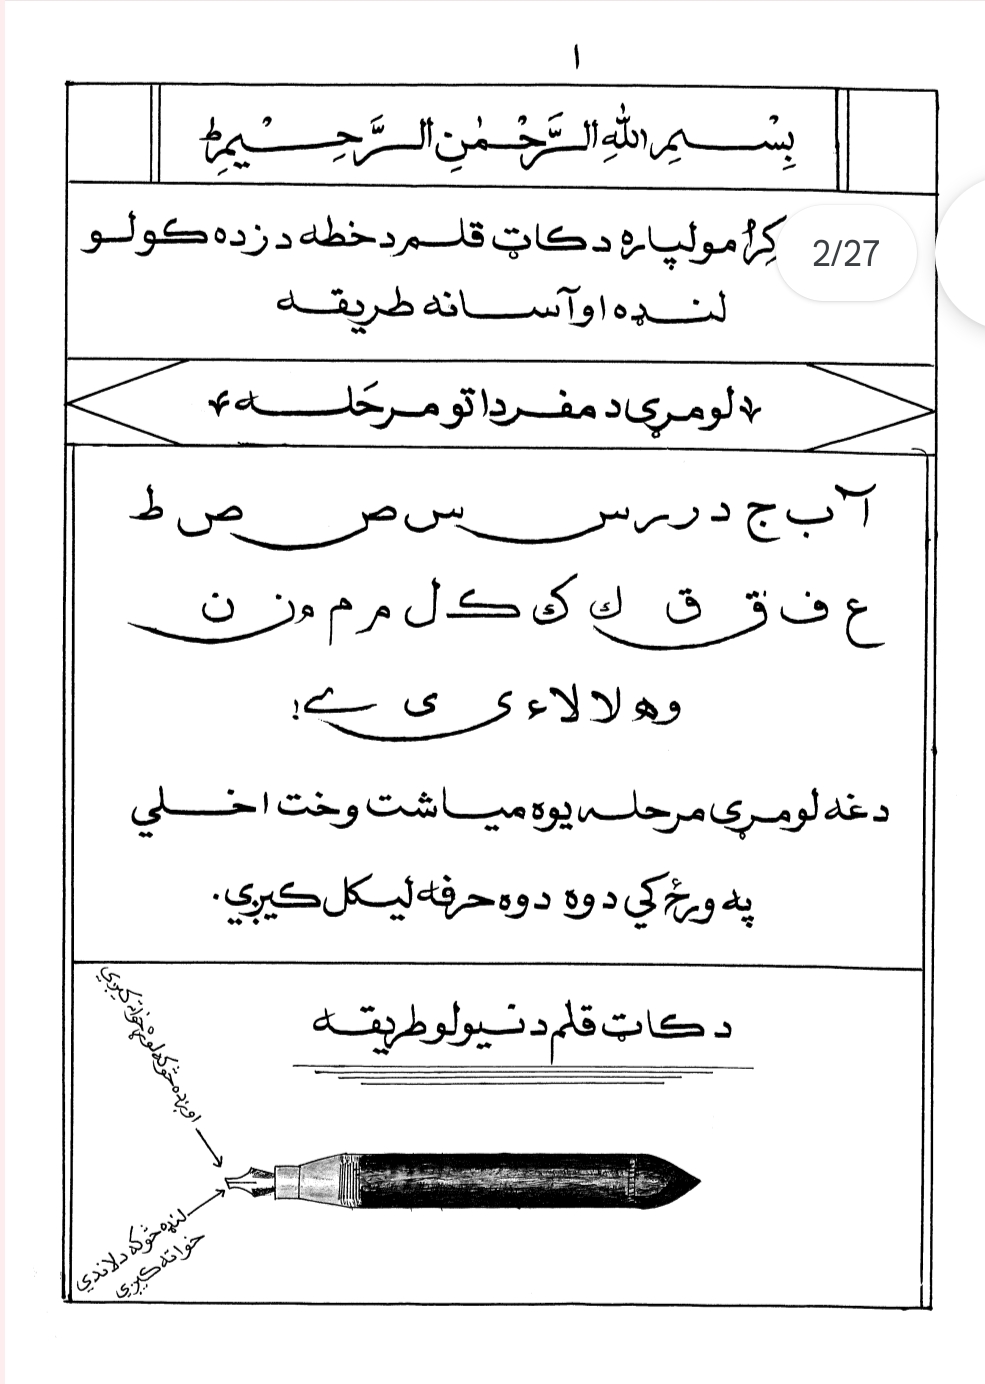 ۱
بِسْمِ اللهِ الرَّحْمٰنِ الرَّحِيْمِ ط
2/27
مو لپاره د کاټ قلم د خطه د زده کولو
لنډه او آسانه طریقه
لومړی د مفرداتو مرحَله
آ ب ج د ر ر س س ص ص ط
ع ف ق ق ك ك ک ل م م و ز ن
و ه لا لا ء ی ی ے !
دغه لومړی مرحله یوه میاشت وخت اخلي
په ورځ کي دوه دوه حرفه لیکل کیږي.
د کاټ قلم د نیولو طریقه
اوږده څوکه لوړ خواته کیږي
لنډه څوکه د لاندي
خواته کیږي